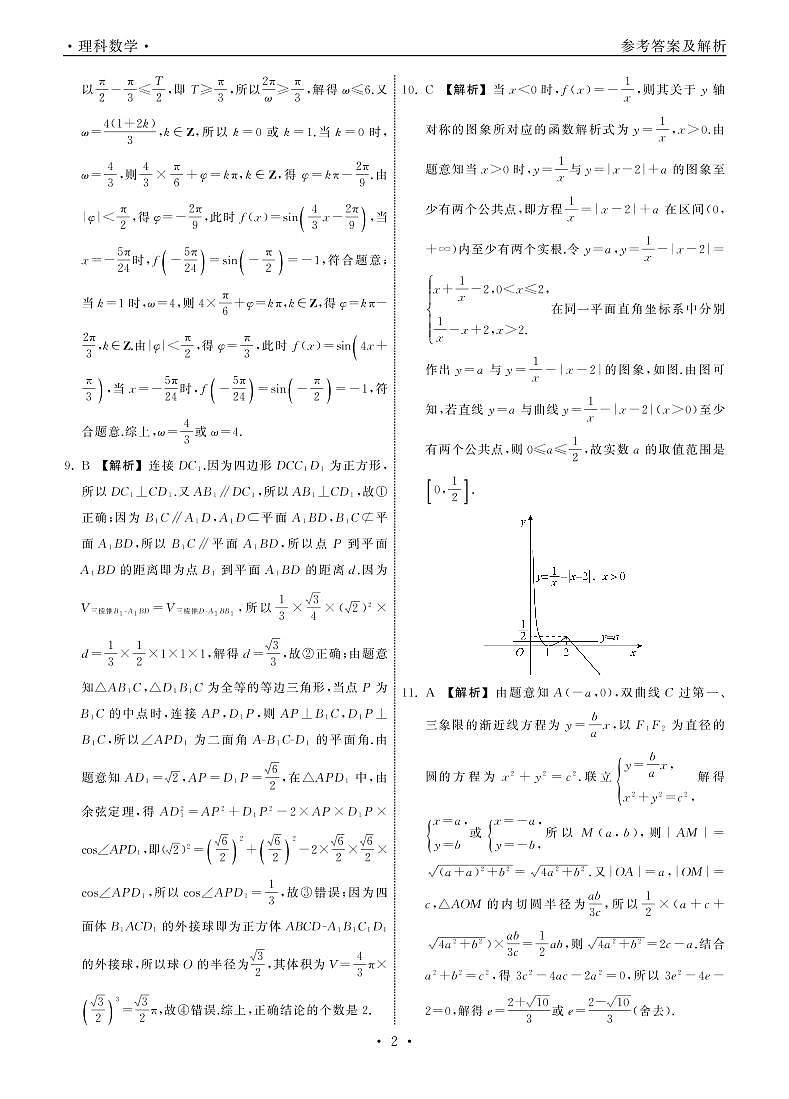 ·理科数学·
参考答案及解析
以π/2-π/3≤T/2,即 T≥π/3,所以2π/ω≥π/3,解得 ω≤6.又
ω=4(1+2k)/3,k∈Z,所以 k=0 或 k=1.当 k=0 时,
ω=4/3,则4/3×π/6+φ=kπ,k∈Z,得 φ=kπ-2π/9.由
|φ|<π/2,得φ=-2π/9,此时 f(x)=sin(4/3x-2π/9),当
x=-5π/24时,f(-5π/24)=sin(-π/2)=-1,符合题意;
当 k=1 时,ω=4,则 4×π/6+φ=kπ,k∈Z,得 φ=kπ-
2π/3,k∈Z.由|φ|<π/2,得 φ=π/3,此时 f(x)=sin(4x+
π/3),当 x=-5π/24时,f(-5π/24)=sin(-π/2)=-1,符
合题意.综上,ω=4/3或 ω=4.
9. B 【解析】连接 DC₁.因为四边形 DCC₁D₁ 为正方形,
所以 DC₁⊥CD₁.又 AB₁∥DC₁,所以 AB₁⊥CD₁,故①
正确;因为 B₁C∥A₁D,A₁D⊂平面 A₁BD,B₁C⊄平
面 A₁BD,所以 B₁C∥平面 A₁BD,所以点 P 到平面
A₁BD 的距离即为点 B₁ 到平面 A₁BD 的距离 d.因为
V三棱锥B₁-A₁BD=V三棱锥D-A₁BB₁,所以1/3×√3/4×(√2)²×
d=1/3×1/2×1×1×1,解得 d=√3/3,故②正确;由题意
知△AB₁C,△D₁B₁C 为全等的等边三角形,当点 P 为
B₁C 的中点时,连接 AP,D₁P,则 AP⊥B₁C,D₁P⊥
B₁C,所以∠APD₁ 为二面角 A-B₁C-D₁ 的平面角.由
题意知 AD₁=√2,AP=D₁P=√6/2,在△APD₁ 中,由
余弦定理,得 AD₁²=AP²+D₁P²-2×AP×D₁P×
cos∠APD₁,即(√2)²=(√6/2)²+(√6/2)²-2×√6/2×√6/2×
cos∠APD₁,所以 cos∠APD₁=1/3,故③错误;因为四
面体 B₁ACD₁ 的外接球即为正方体 ABCD-A₁B₁C₁D₁
的外接球,所以球 O 的半径为√3/2,其体积为 V=4/3π×
(√3/2)³=√3/2π,故④错误.综上,正确结论的个数是 2.
10. C 【解析】当 x<0 时,f(x)=-1/x,则其关于 y 轴
对称的图象所对应的函数解析式为 y=1/x,x>0.由
题意知当 x>0 时,y=1/x与 y=|x-2|+a 的图象至
少有两个公共点,即方程1/x=|x-2|+a 在区间(0,
+∞)内至少有两个实根.令 y=a,y=1/x-|x-2|=
{x+1/x-2,0<x≤2,
1/x-x+2,x>2. 在同一平面直角坐标系中分别
作出 y=a 与 y=1/x-|x-2|的图象,如图.由图可
知,若直线 y=a 与曲线 y=1/x-|x-2|(x>0)至少
有两个公共点,则 0≤a≤1/2,故实数 a 的取值范围是
[0,1/2].
y
y=1/x-|x-2|, x>0
1/2
y=a
O 1 2 x
11. A 【解析】由题意知 A(-a,0),双曲线 C 过第一、
三象限的渐近线方程为 y=b/ax,以 F₁F₂ 为直径的
圆的方程为 x²+y²=c².联立{y=b/ax, x²+y²=c², 解得
{x=a, y=b 或{x=-a, y=-b, 所以 M(a,b),则|AM|=
√((a+a)²+b²)=√(4a²+b²).又|OA|=a,|OM|=
c,△AOM 的内切圆半径为ab/3c,所以1/2×(a+c+
√(4a²+b²))×ab/3c=1/2ab,则√(4a²+b²)=2c-a.结合
a²+b²=c²,得 3c²-4ac-2a²=0,所以 3e²-4e-
2=0,解得 e=(2+√10)/3或 e=(2-√10)/3(舍去).
·2·